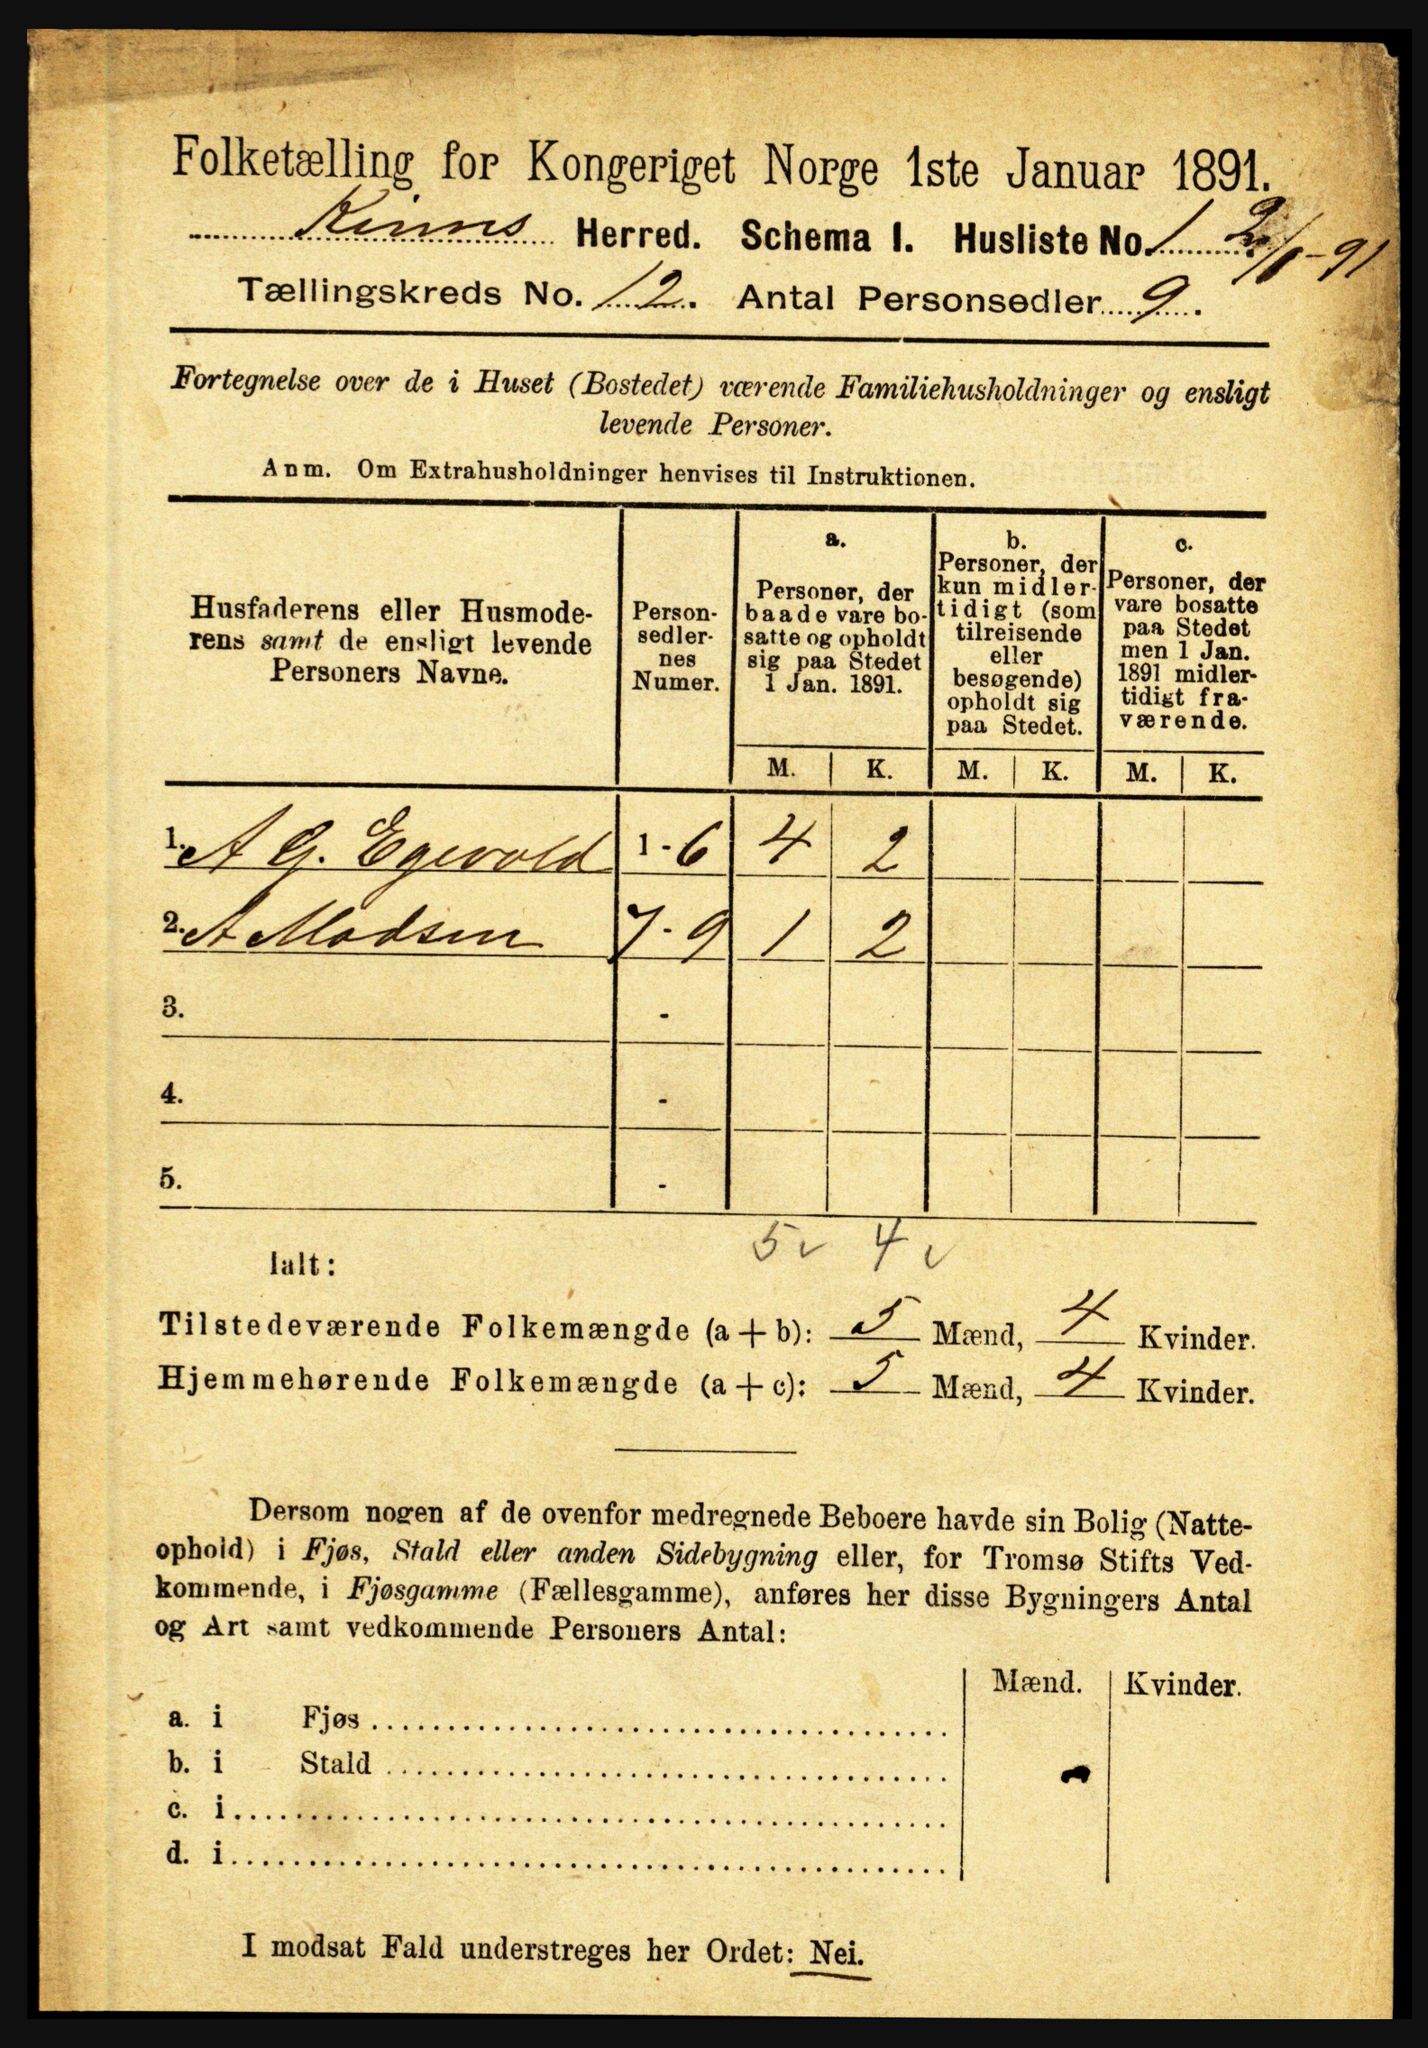 Folketælling for Kongeriget Norge 1ste Januar 1891.
Kinns Herred. Schema I. Husliste No. 1 2/1-91
Tællingskreds No. 12. Antal Personsedler 9.
Fortegnelse over de i Huset (Bostedet) værende Familiehusholdninger og ensligt
levende Personer.
Anm. Om Extrahusholdninger henvises til Instruktionen.
Husfaderens eller Husmode-
rens samt de ensligt levende
Personers Navne.
Person-
sedler-
nes
Numer.
a.
Personer, der
baade vare bo-
satte og opholdt
sig paa Stedet
1 Jan. 1891.
b.
Personer, der
kun midler-
tidigt (som
tilreisende
eller
besøgende)
opholdt sig
paa Stedet.
c.
Personer, der
vare bosatte
paa Stedet
men 1 Jan.
1891 midler-
tidigt fra-
værende.
M. K. M. K. M. K.
1. A G. Egevold 1-6 4 2
2. A Madsen 7-9 1 2
3. -
4. -
5. -
5 v 4 v
Ialt:
Tilstedeværende Folkemængde (a+b): 5 Mænd, 4 Kvinder.
Hjemmehørende Folkemængde (a+c): 5 Mænd, 4 Kvinder.
Dersom nogen af de ovenfor medregnede Beboere havde sin Bolig (Natte-
ophold) i Fjøs, Stald eller anden Sidebygning eller, for Tromsø Stifts Ved-
kommende, i Fjøsgamme (Fællesgamme), anføres her disse Bygningers Antal
og Art samt vedkommende Personers Antal:
Mænd. Kvinder.
a. i Fjøs
b. i Stald
c. i
d. i
I modsat Fald understreges her Ordet: Nei.